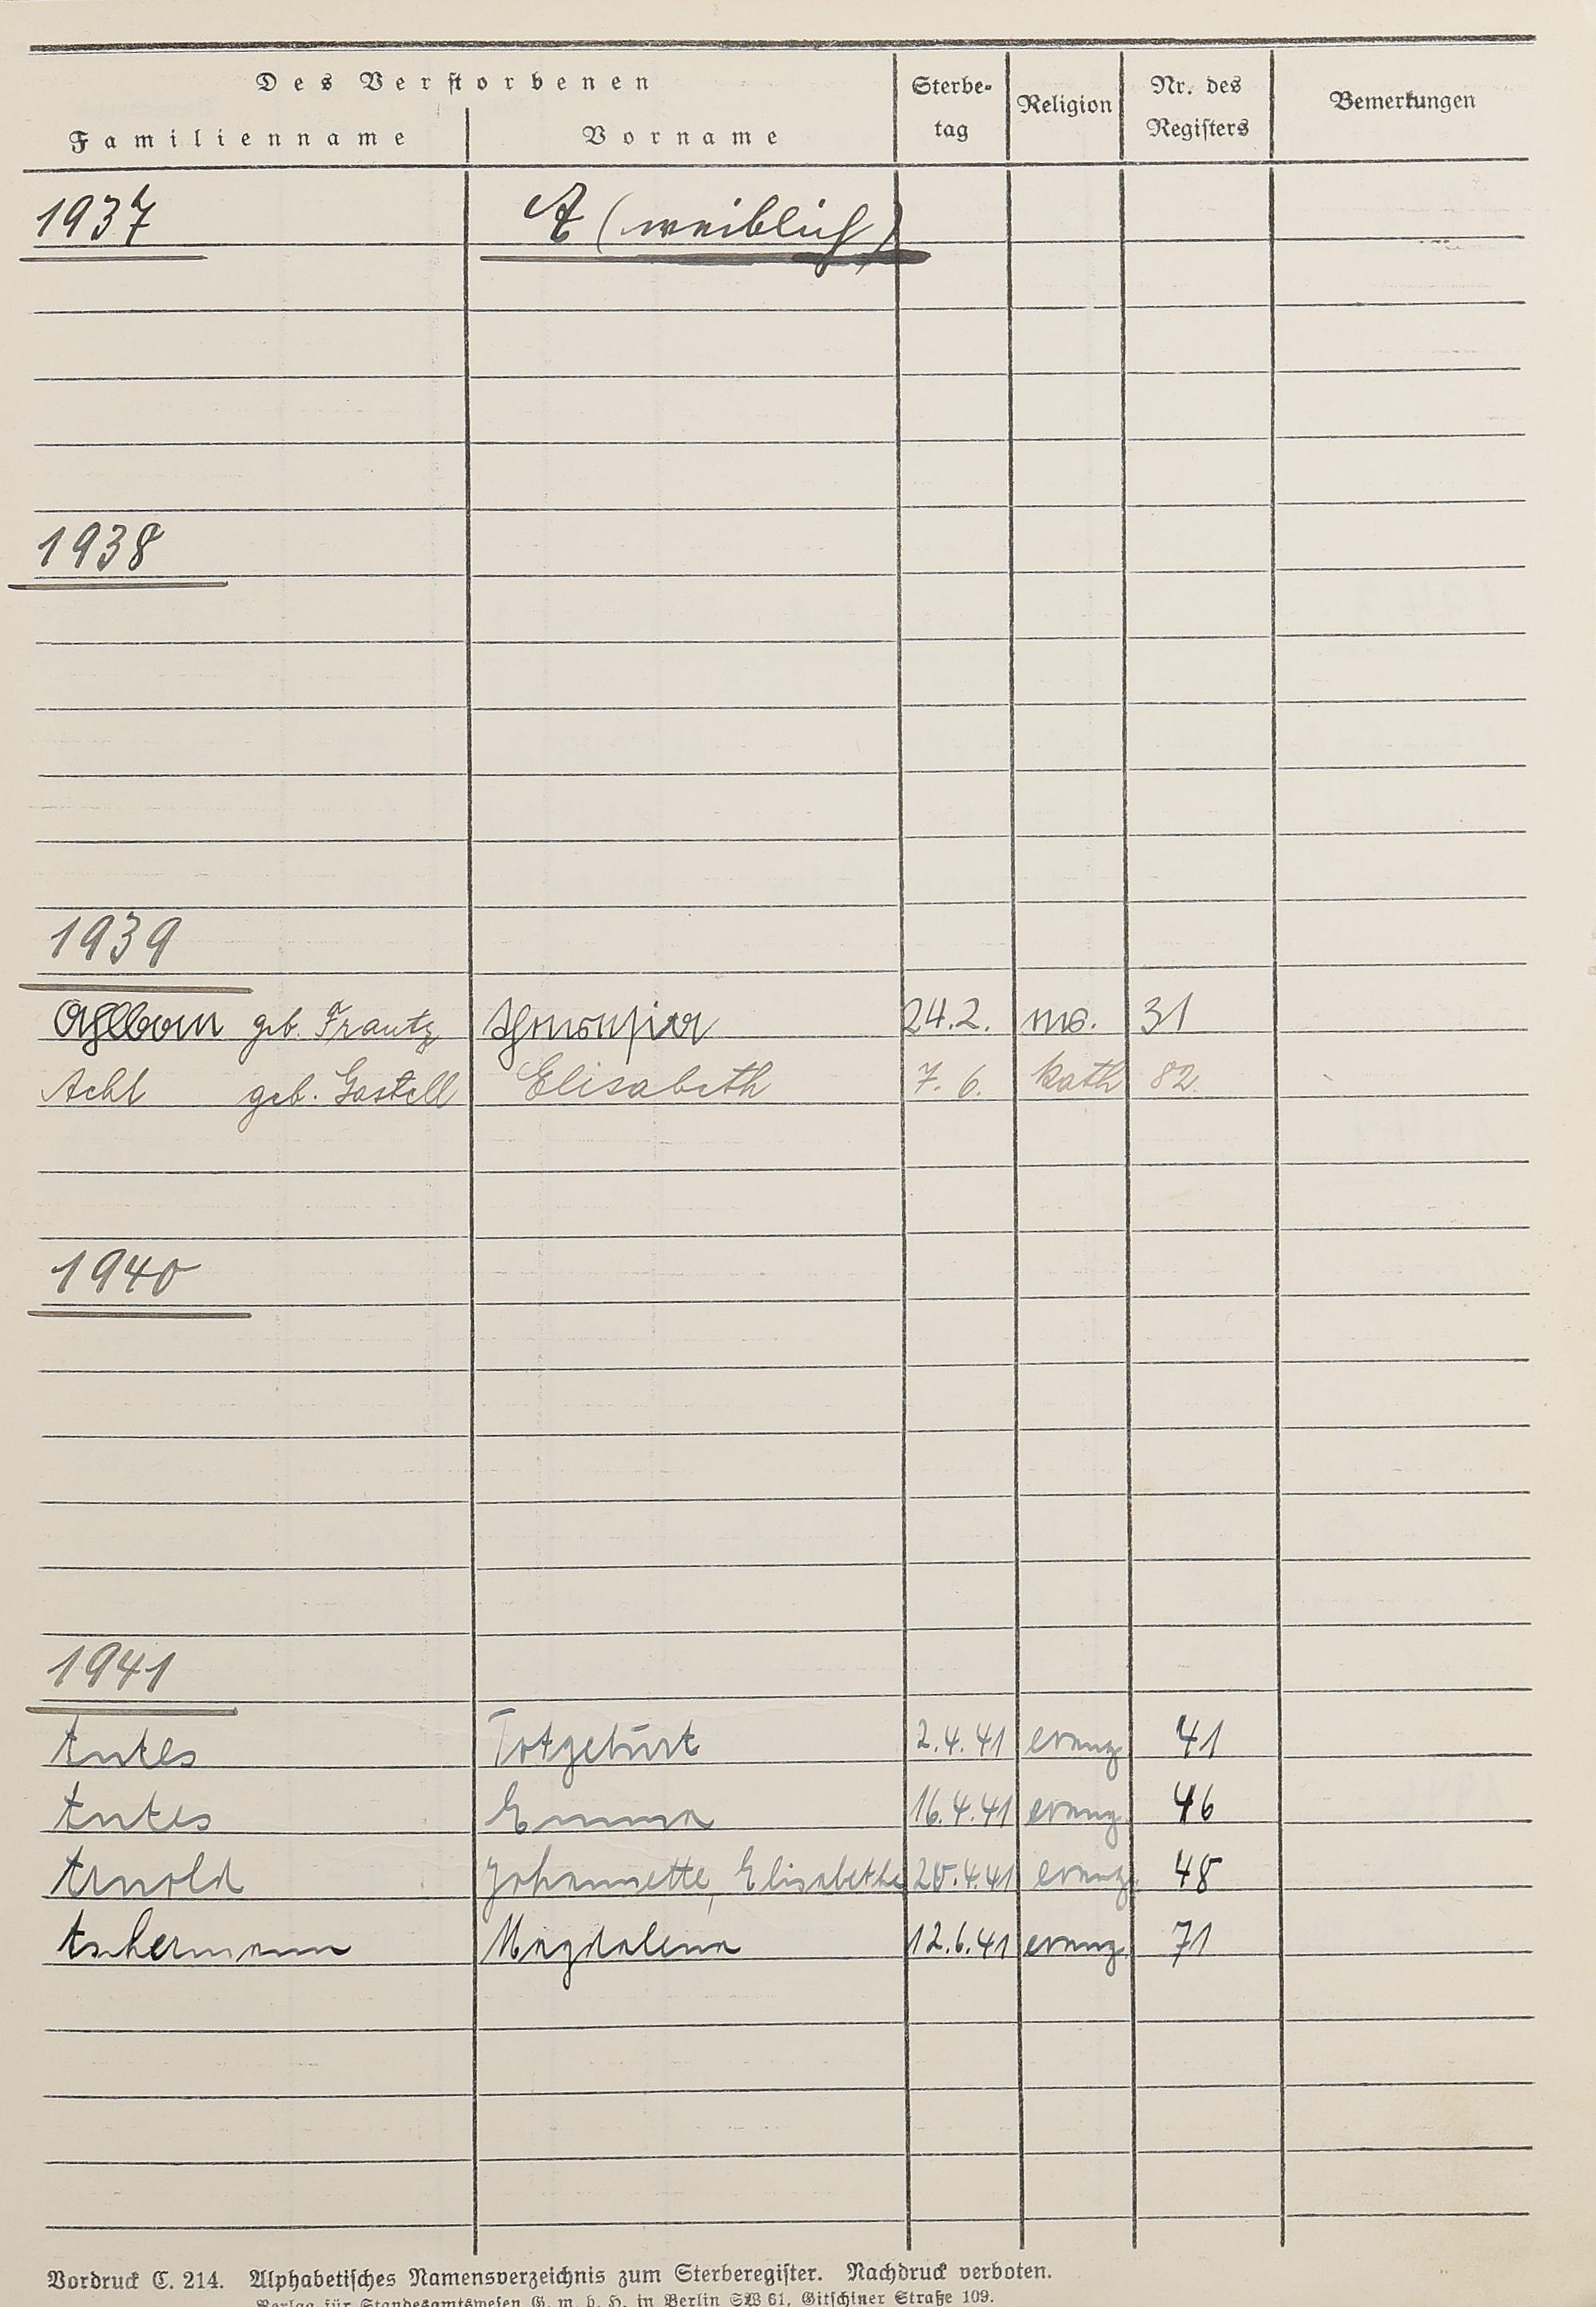 Des Verstorbenen
Familienname Vorname Sterbe-tag Religion Nr. des Registers Bemerkungen
1937 A (weiblich)
1938
1939
Ahlborn geb. Frantz 24.2. 31
Acht geb. Gastell Elisabeth 7. 6. kath 82.
1940
1941
Antes Totgeburt 2.4.41 evang 41
Antes Emma 16.4.41 evang. 46
Arnold Johannette, Elisabethe 20.4.41 evang. 48
Aschermann Magdalena 12.6.41 evang. 71
Vordruck C. 214. Alphabetisches Namensverzeichnis zum Sterberegister. Nachdruck verboten.
Verlag für Standesamtswesen G. m. b. H. in Berlin SW 61, Gitschiner Straße 109.